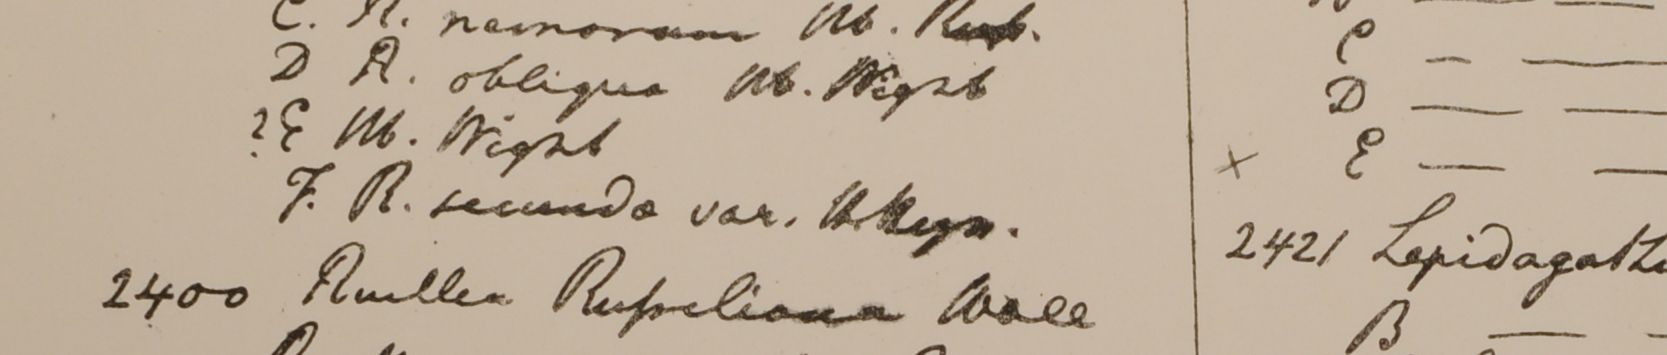 C. R. nemorum Hb. Rusſ.
D R. obliqua Hb. Wight
? E Hb. Wight
F. R. secunda var. H. Heyn.
2400 Ruellia Ruſseliana Wall
C — —
D — —
× E — —
2421 Lepidagath
B — —